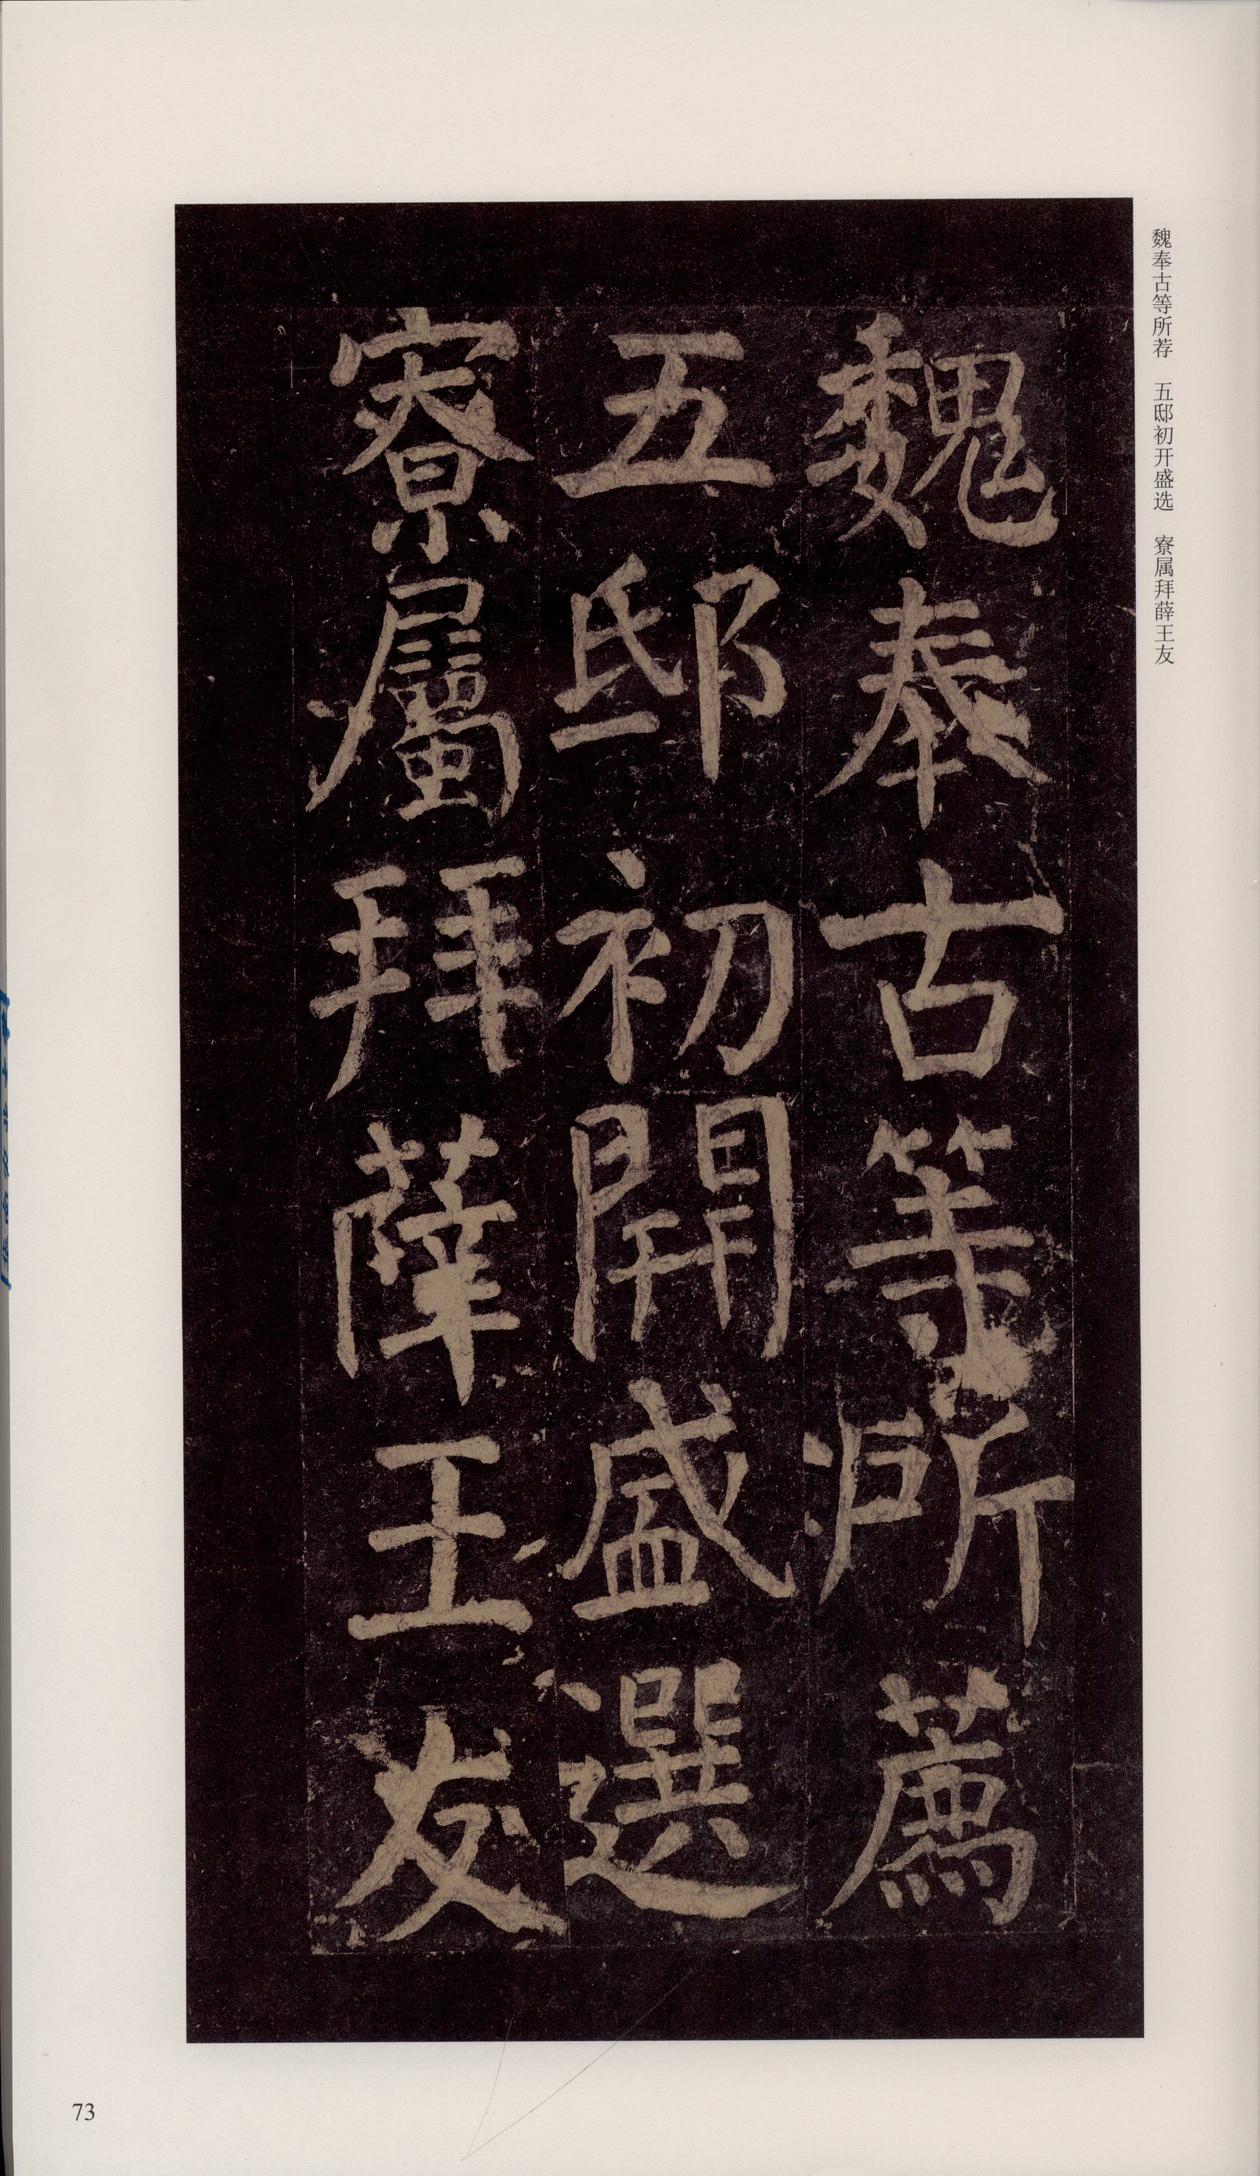 魏奉古等所荐　五邸初开盛选　寮属拜薛王友
魏奉古等所薦
五邸初開盛選
寮屬拜薛王友
73